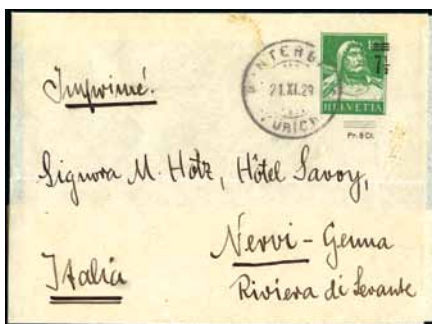 Imprimé.
21.XI.29
HELVETIA
Pr. 8 Ct.
Signora M. Hotz, Hôtel Savoy,
Nervi - Genua
Italia
Riviera di Levante